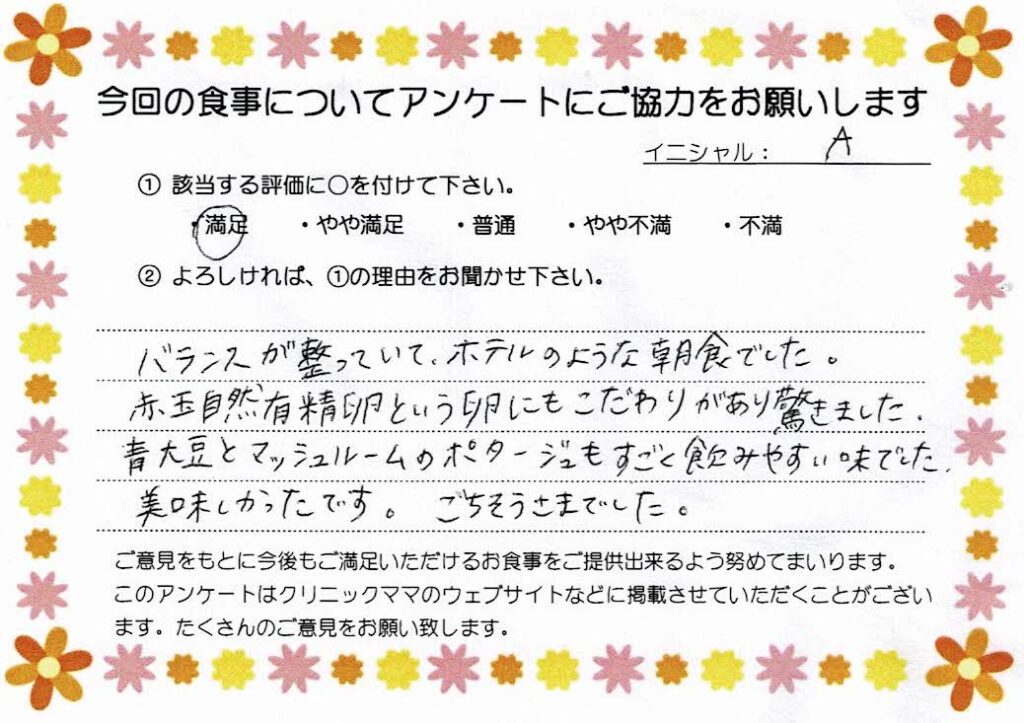 今回の食事についてアンケートにご協力をお願いします
イニシャル： A
① 該当する評価に〇を付けて下さい。
・満足 ・やや満足 ・普通 ・やや不満 ・不満
② よろしければ、①の理由をお聞かせ下さい。
バランスが整っていて、ホテルのような朝食でした。
赤玉自然有精卵という卵にもこだわりがあり驚きました.
青大豆とマッシュルームのポタージュもすごく飲みやすい味でした.
美味しかったです。 ごちそうさまでした。
ご意見をもとに今後もご満足いただけるお食事をご提供出来るよう努めてまいります。
このアンケートはクリニックママのウェブサイトなどに掲載させていただくことがござい
ます。たくさんのご意見をお願い致します。